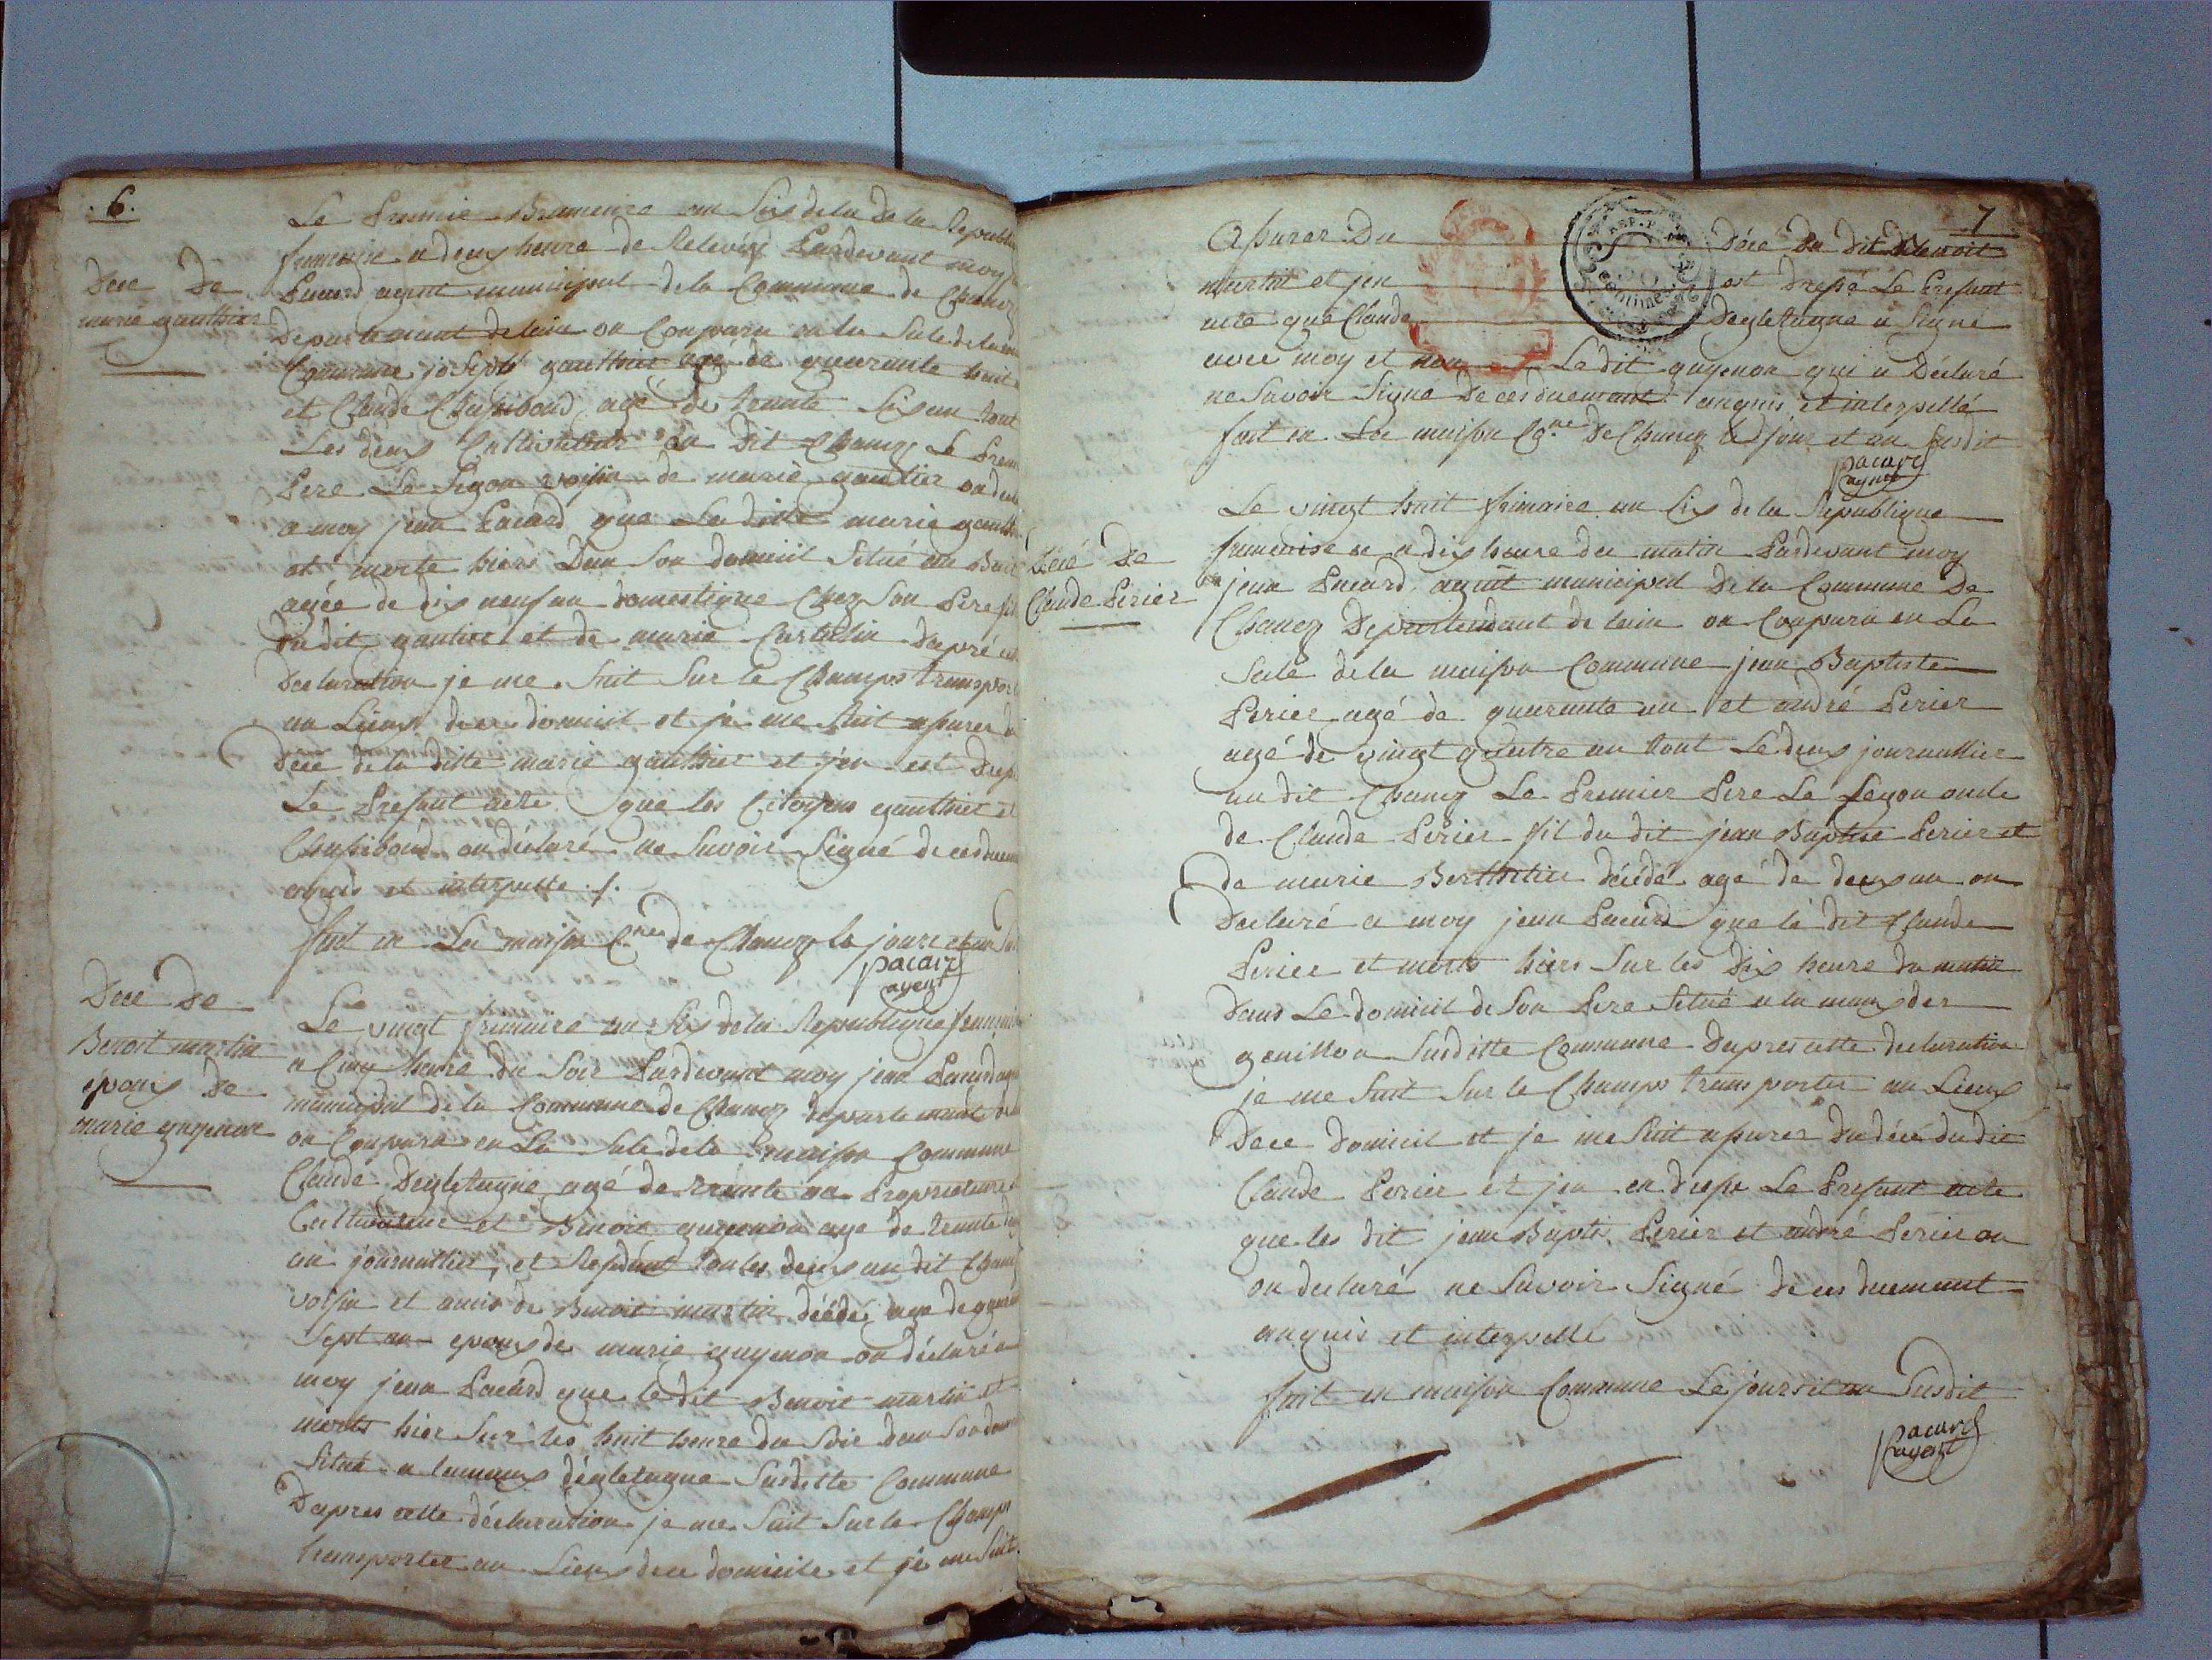 6.
Le Premie Brumenre an Six de la De la Republi
francoise a deux heure de Relevéz Pardevant moy
Dece De
marie gauthier
Pacard agent municipal de la Commune de Chanoz
Departemant delain on Conparu en la Sale de la
Commune joseph gauthier agé de quarante huit
et Claude Chassiboud agé de trante Six an tout
Les deux Cultivateur au Dit Chanoz Le Prem
Pere Le Segon voisin de marie gautier on de
a moy jean Pacard que La ditte marie gauth
et morte hiers Dan Son domicil Situé au
agée de dix neuf an domestique Chez Son Pere
du dit gautier et de marie Dapré
Declaration je me Suit Sur le Champs transpor
au Lieux de ce domicil et je me Suit assurer
Décé de la ditte marie gauthier et j'en est Dres
Le Presant acte que les Citoyens gauthier et
Chassiboud on déclaré ne Savoir Signé de ce duem
anquis et interpelle ./.
fait en La maison C.ne de Chanoz le jour et an
pacard
agent
Dece De
Benoit martin
epoux De
marie guyenon
Le vingt frimaire an Six de la Republique francoi
a Cinq heure du Soir Pardevant moy jean Pacard
municipal de la Commune de Chanoz departemant
on Conparu en La Sale de la maison Commune
Claude Degletagne agé de trente an Propriétaire
Cultivateur et Benoit guyenon age de trante
an journallier, et Residant tou les deux au dit Chan
voisin et amis de Benoit martin décédé age de quaran
Sept an epoux de marie guyenon on déclaré a
moy jean Pacard que le dit Benoit martin et
morts hier Sur les huit heure du Soir dan Son dom
Situé a lamaux dégletagne Susditte Commune
Dapres cette déclaration je me Suit Sur le Champs
transporter au Lieux de ce domicile et je me Suit
7
Assurer Du Décé Du dit Benoit
martin et jen est Dressé Le Presant
acte que Claude Degletagne a Signé
avec moy et non Le dit guyenon qui a Déclaré
ne Savoir Signe De ces duemant anquis et interpellé
fait en La maison C.ne De Chanoz le jour et an Susdit
pacard
agent
Décé De
Claude Perier
Le vingt huit frimaire an Six de la Republique
francoise a dix heure du matin Pardevant moy
jean Pacard agent municipal De la Commune De
Chanoz Departemant de lain on Conparu en La
Sale de la maison Commune jean Baptiste
Perier agé de quarante an et andré Perier
agé de vingt quatre an tout Le deux journallier
au dit Chanoz Le Premier Pere Le Segon oncle
de Claude Perier fil du dit jean Baptise Perier et
de marie Berthelier décédé agé de deux an on
Declaré a moy jean Pacard que le dit Claude
Perier et morts hiers Sur les Dix heure du matin
Dans Le domicil de Son Pere Situé a la maux der
genillon Susditte Commune Dapres cette declaration
je me Suit Sur le Champs transporter au Lieux
De ce domicil et je me Suit assurer Du décé du dit
Claude Perier et jen en dresse Le Presant acte
que les dit jean Baptis. Perier et andré Perier on
on declaré ne Savoir Signé de ces duemant
anquis et interpellé
fait en maison Commune Le jours et an Susdit
pacard
agent